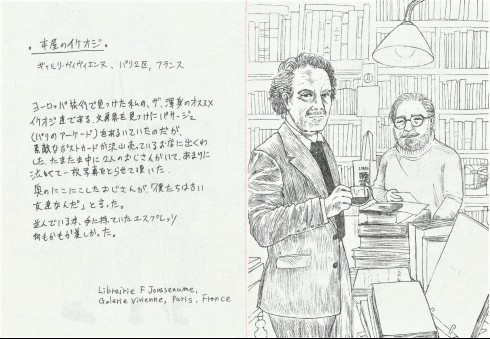 ・本屋のイケオジ・
ギャルリ・ヴィヴィエンヌ、パリ2区,フランス
ヨーロッパ旅行で見つけた私の、ザ、渾身のオススメ
イケオジ達である。文房具を見つけにパサージュ
(パリのアーケード)を歩いていたのだが、
素敵なポストカードが沢山売っているお店に出くわ
した。たまたま中に2人のおじさんがいて、あまりに
渋くて一枚写真をとらせて頂いた。
奥のにこにこしたおじさんが、「僕たちは古い
友達なんだ」と言った。
並んでいる本、手に持っていたエスプレッソ
何もかもが美しかった。
Librairie F Jousseaume,
Galerie Vivienne, Paris, France